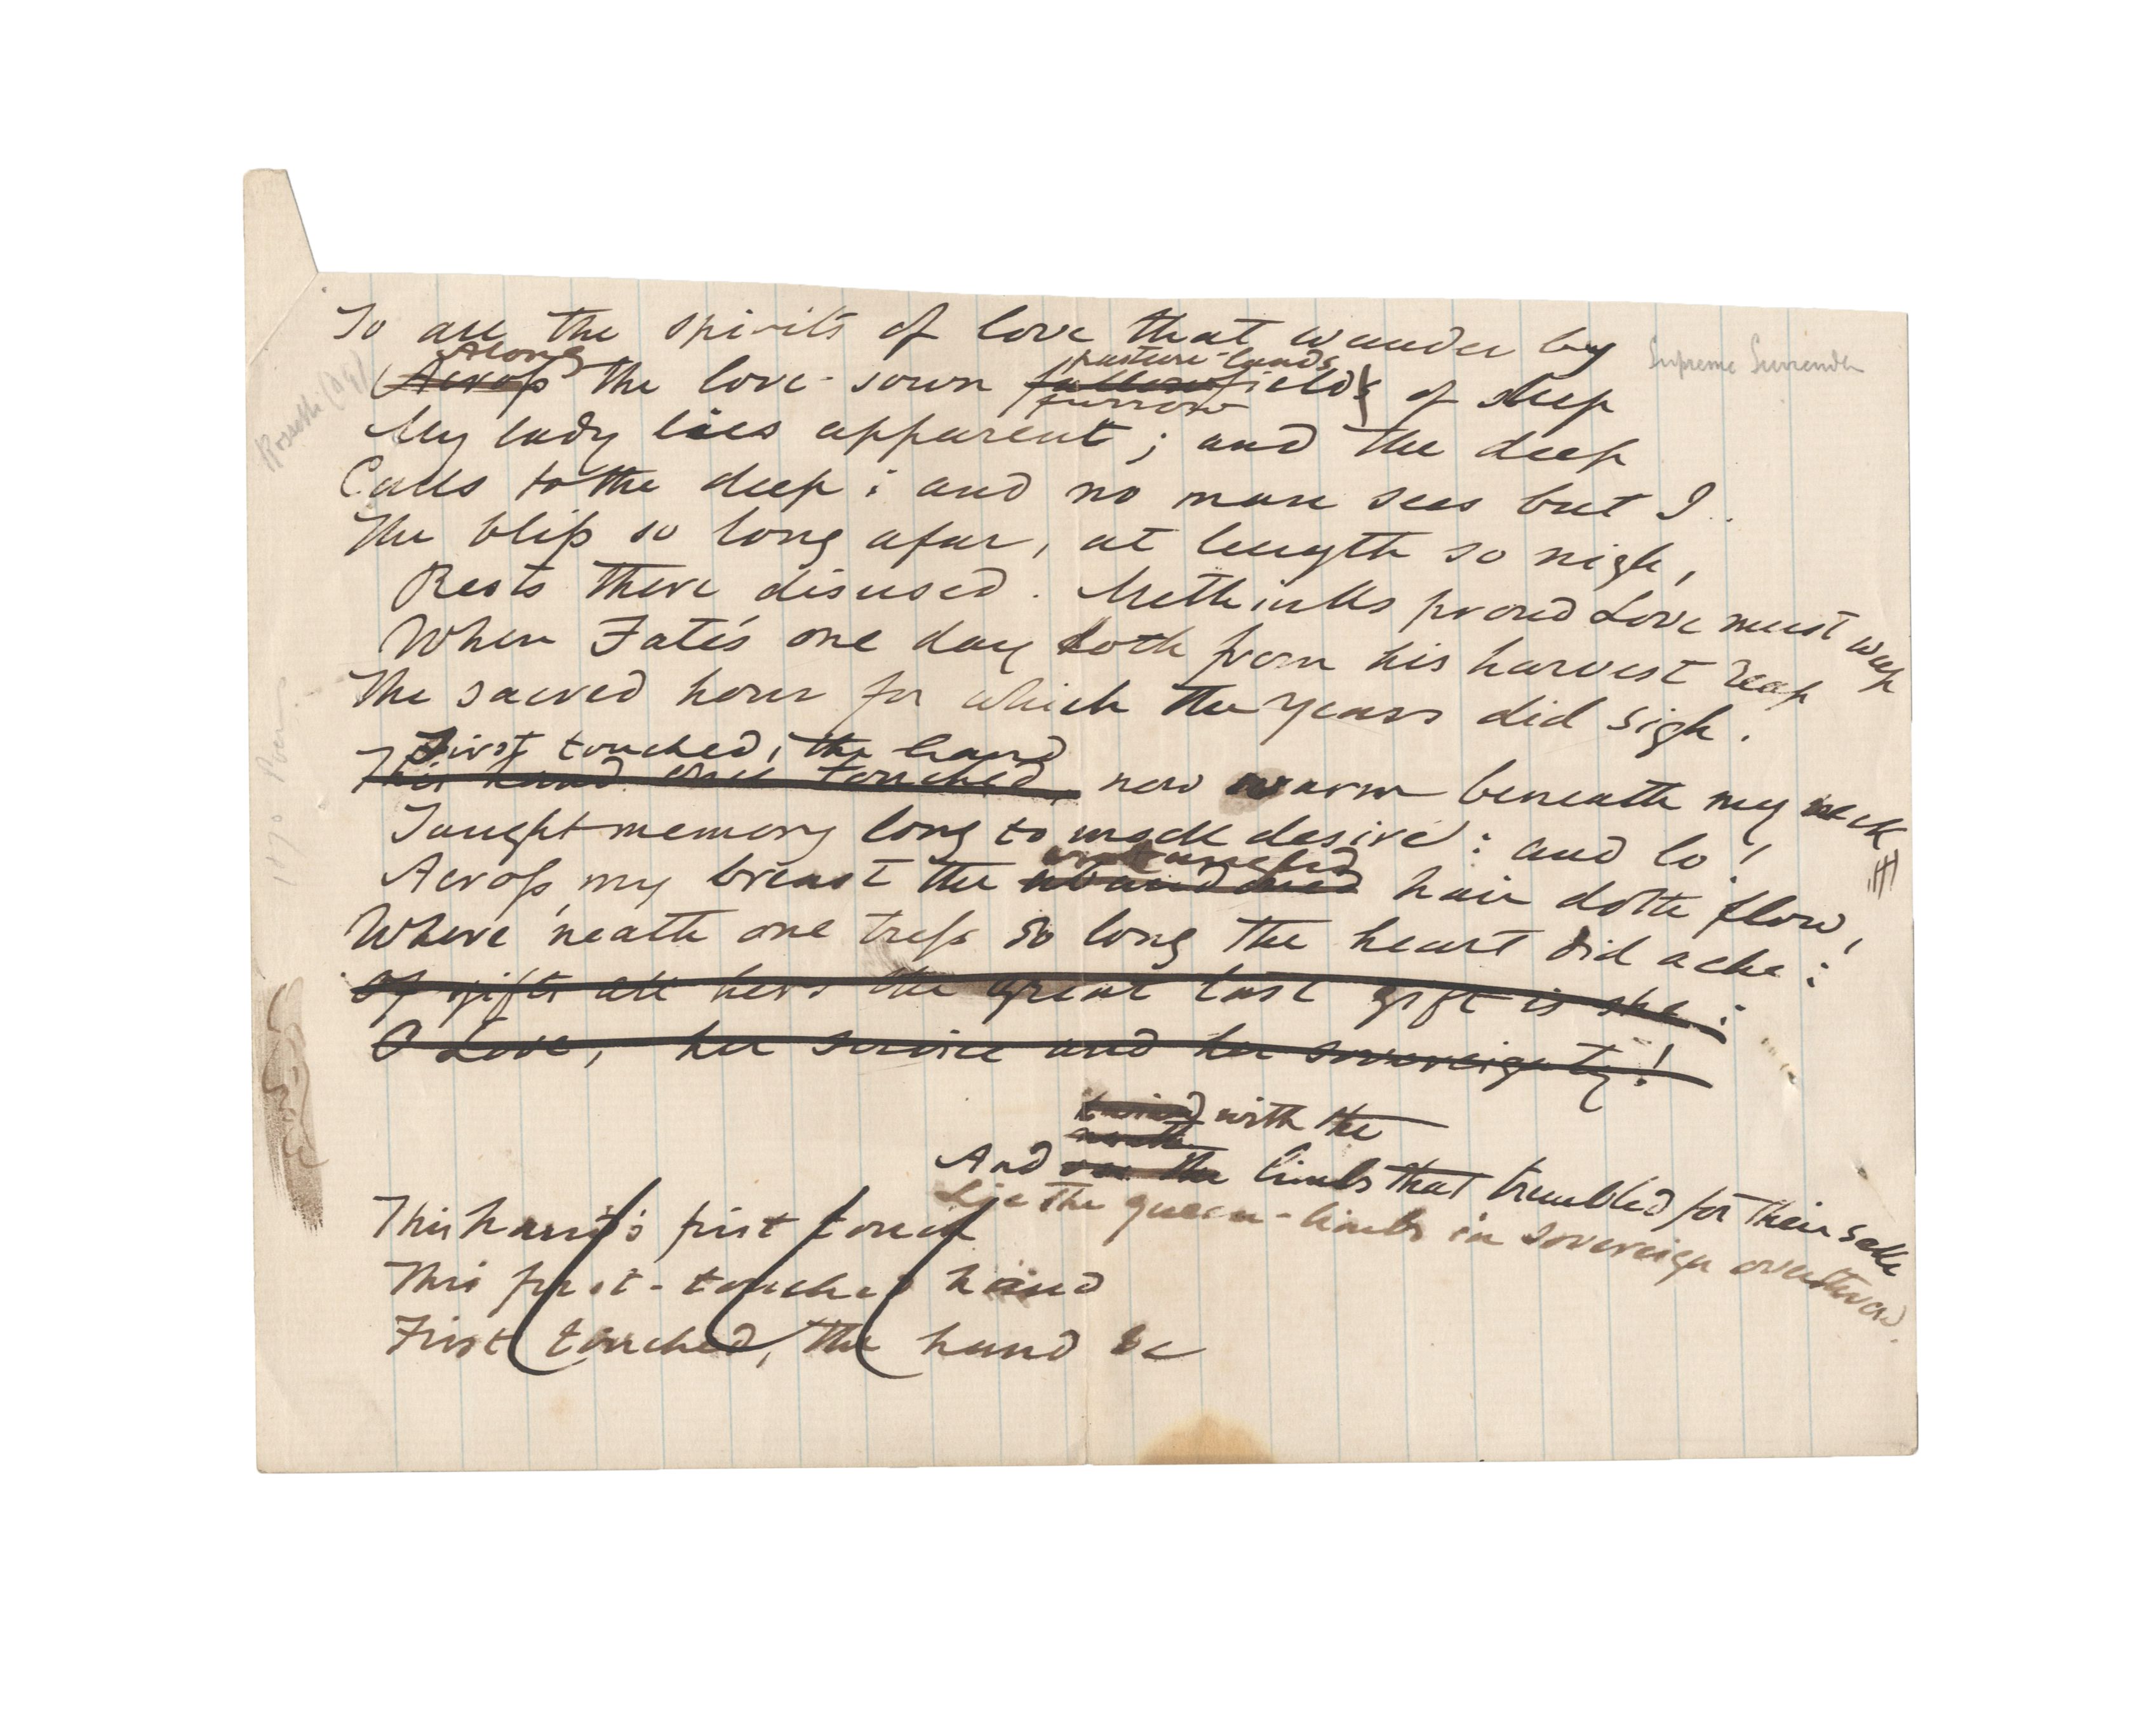 To all the spirits of love that wander by
Supreme Surrender
Along pasture-lands
Across the love-sown fallowfields of sleep
furrow
My lady lies apparent; and the deep
Calls to the deep; and no man sees but I.
The bliss so long afar, at length so nigh,
Rests there disused. Methinks proud Love must weep
When Fate's one day doth from his harvest reap
The sacred hour for which the years did sigh.
First touched, the hand
This hand once touched, now warm beneath my neck
Taught memory long to mock desire: and lo!
untangled
Across my breast the abandoned hair doth flow,
Where 'neath one tress so long the heart did ache:
Of gifts all hers the great last gift is she:
O Love, her service and her sovereignty!
twined with the
And on the limbs that trembled for their sake
Lie the queen-limbs in sovereign overthrow.
This hand's first touch
This first-touched hand
First touched, the hand &c
Rossetti (DG)
1870 Poems